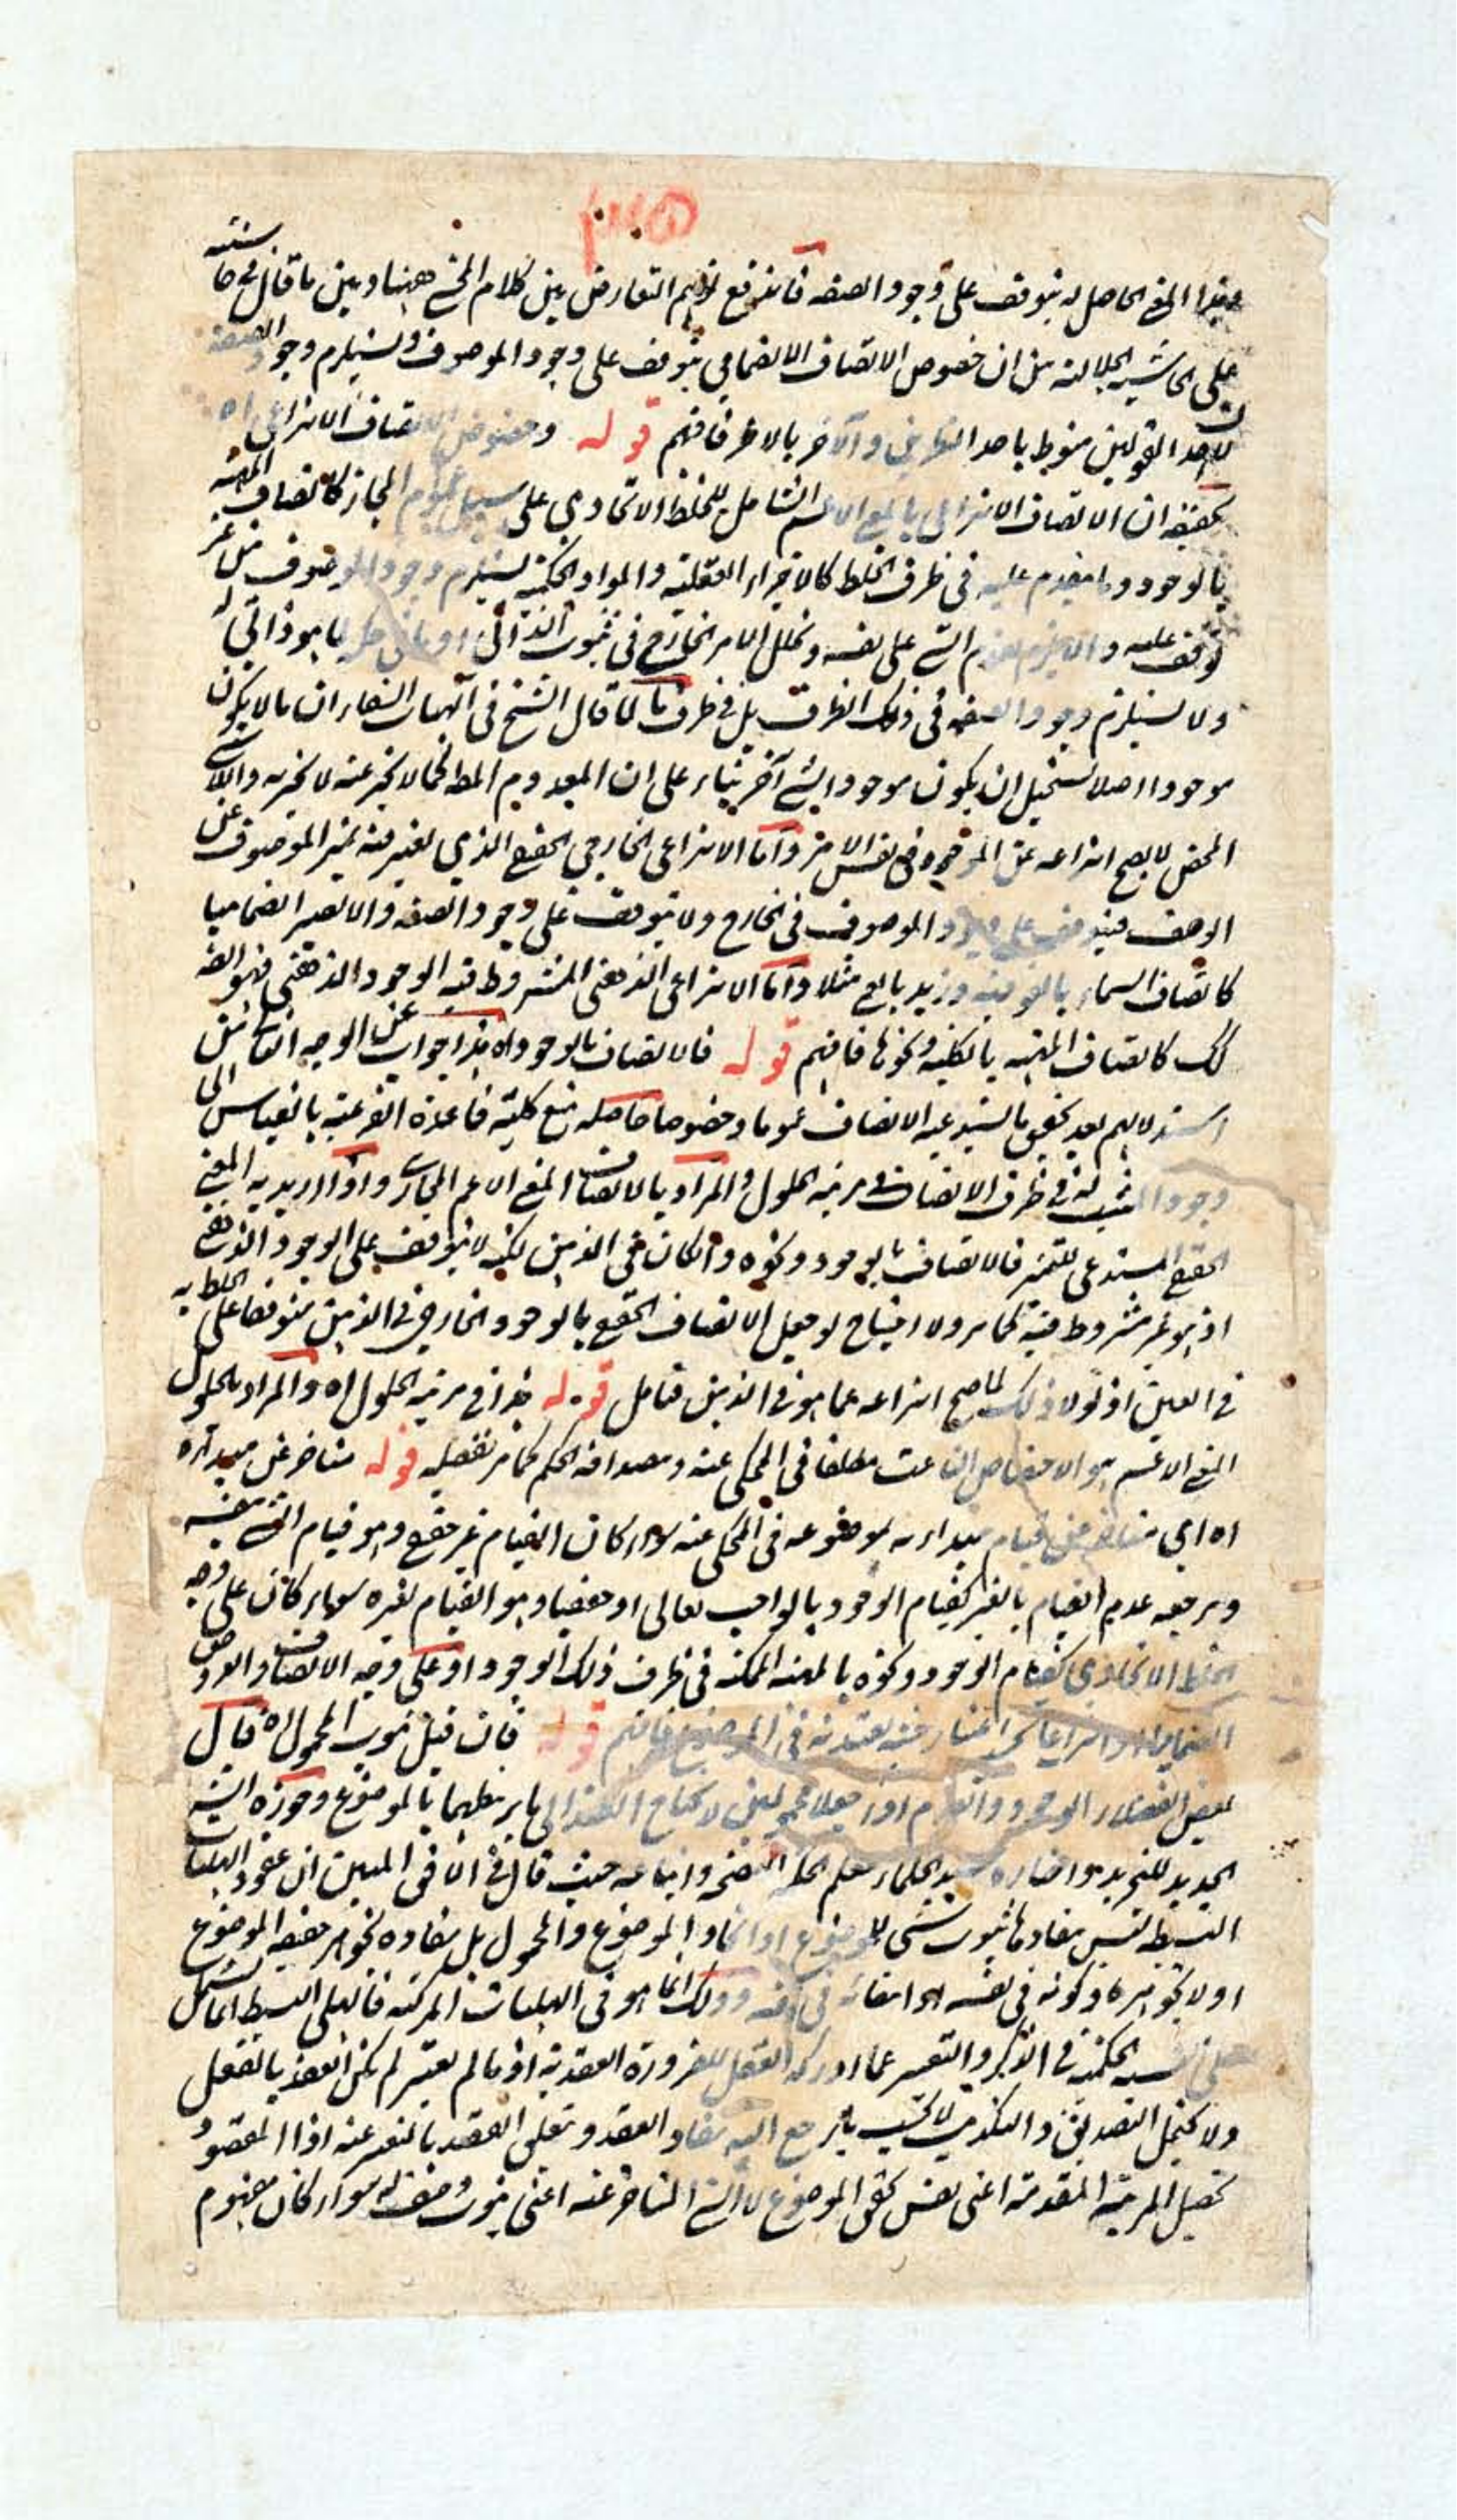 المعنى الحاصل له يتوقف على وجود الصفة فاندفع توهم التعارض بين كلام المحشي ههنا وبين ما قال في حاشيته
على الحاشية الجلالية من ان خصوص الاتصاف الانضمامي يتوقف على وجود الموصوف ويستلزم وجود الصفة
لان احد القولين منوط باحد النظرين والآخر بالآخر فافهم قوله وخصوص الاتصاف الانتزاعي اه
تحقيقه ان الاتصاف الانتزاعي بالمعنى الاعم الشامل للخلط الاتحادي على سبيل عموم المجاز كاتصاف المهية
بالوجود وما يتقدم عليه في ظرف الخلط كالاجزاء العقلية والمواد الحكمية يستلزم وجود الموصوف من غير
توقف عليه والا يلزم تقدم الشيء على نفسه وتخلل الامر الخارج في ثبوت الذاتي لما هو ذاتي له
ولا يستلزم وجود الصفة في ذلك الظرف بل في ظرف ما لما قال الشيخ في الهيات الشفاء ان ما لا يكون
موجودا اصلا يستحيل ان يكون موجودا لشيء آخر بناء على ان المعدوم المطلق كما لا يخبر عنه لا يخبر به واللاشيء
المحض لا يصح انتزاعه عن الموجود في نفس الامر واما الانتزاعي الخارجي الحقيقي الذي يعتبر فيه تميز الموصوف عن
الوصف فيتوقف على وجود الموصوف في الخارج ولا يتوقف على وجود الصفة والا لصار انضماميا
كاتصاف السماء بالفوقية وزيد بالعمى مثلا واما الانتزاعي الذهني المشروط فيه الوجود الذهني فهو ايضا
كك كاتصاف المهية بالكلية ونحوها فافهم قوله فالاتصاف بالوجود اه هذا جواب عن الوجه الثاني من
استدلالهم بعد تحقيق ما يستدعيه الاتصاف عموما وخصوصا حاصله منع كلية قاعدة الفرعية بالقياس الى
وجود المثبت له في ظرف الاتصاف في مرتبة الحلول والمراد بالاتصاف المعنى الاعم المجازي واذا اريد به المعنى
الحقيقي المستدعي للتميز فالاتصاف بالوجود ونحوه وان كان في الذهن لكنه لا يتوقف على الوجود الذهني
اذ هو غير مشروط فيه كما مر ولا احتياج لو جعل الاتصاف الحقيقي بالوجود الخارجي في الذهن متوقفا على الخلط به
في العين اذ لولا ذلك لما صح انتزاعه عما هو في الذهن فتامل قوله هذا في مرتبة الحلول اه والمراد بالحلول
المعنى الاعم هو الاختصاص الناعت مطلقا في المحكي عنه ومصداقه الحكم كما مر تفصيله قوله متاخر عن مبدائه
اه اي متاخر عن قيام مبدائه لموضوعه في المحكي عنه سواء كان القيام غير حقيقي وهو قيام الشيء بنفسه
ومرجعه عدم القيام بالغير كقيام الوجود بالواجب تعالى او حقيقيا وهو القيام لغيره سواء كان على وجه
الخلط الاتحادي كقيام الوجود ونحوه بالمهية الممكنة في ظرف ذلك الوجود او على وجه الاتصاف والعروض
انضماميا او انتزاعيا في الموضوع فافهم قوله فان قيل ثبوت المحمول اه قال
بعض الفضلاء الوجود والعدم اذا جعلا محمولين لا يحتاج العقد الى ما يربطهما بالموضوع وحوزه الشيخ
الجديد للتجريد واختاره سيد الحكماء معلم الحكمة اليمنية واتباعه حيث قال في الافق المبين ان عقود الهليات
البسيطة ليس مفادها ثبوت شيء للموضوع او اتحاد الموضوع والمحمول بل مفاده تجوهر حقيقة الموضوع
او لا تجوهره وكونه في نفسه او انتفائه في نفسه وذلك انما هو في الهليات المركبة فالهلي البسيط انما يشتمل
على النسبة الحكمية في الذكر والتعبير عما ادركه العقل للضرورة العقدية اذ ما لم يعتبر لم يكن العقد بالفعل
ولا يحتمل التصديق والتكذيب لا بحسب ما يرجع اليه مفاد العقد وتعلى العقد بالتعبير عنه اذا المقصود
تحصيل المرتبة المتقدمة اعني نفس تحقق الموضوع لا المرتبة المتاخرة عنه اعني ثبوت وصف له سواء كان مفهوم